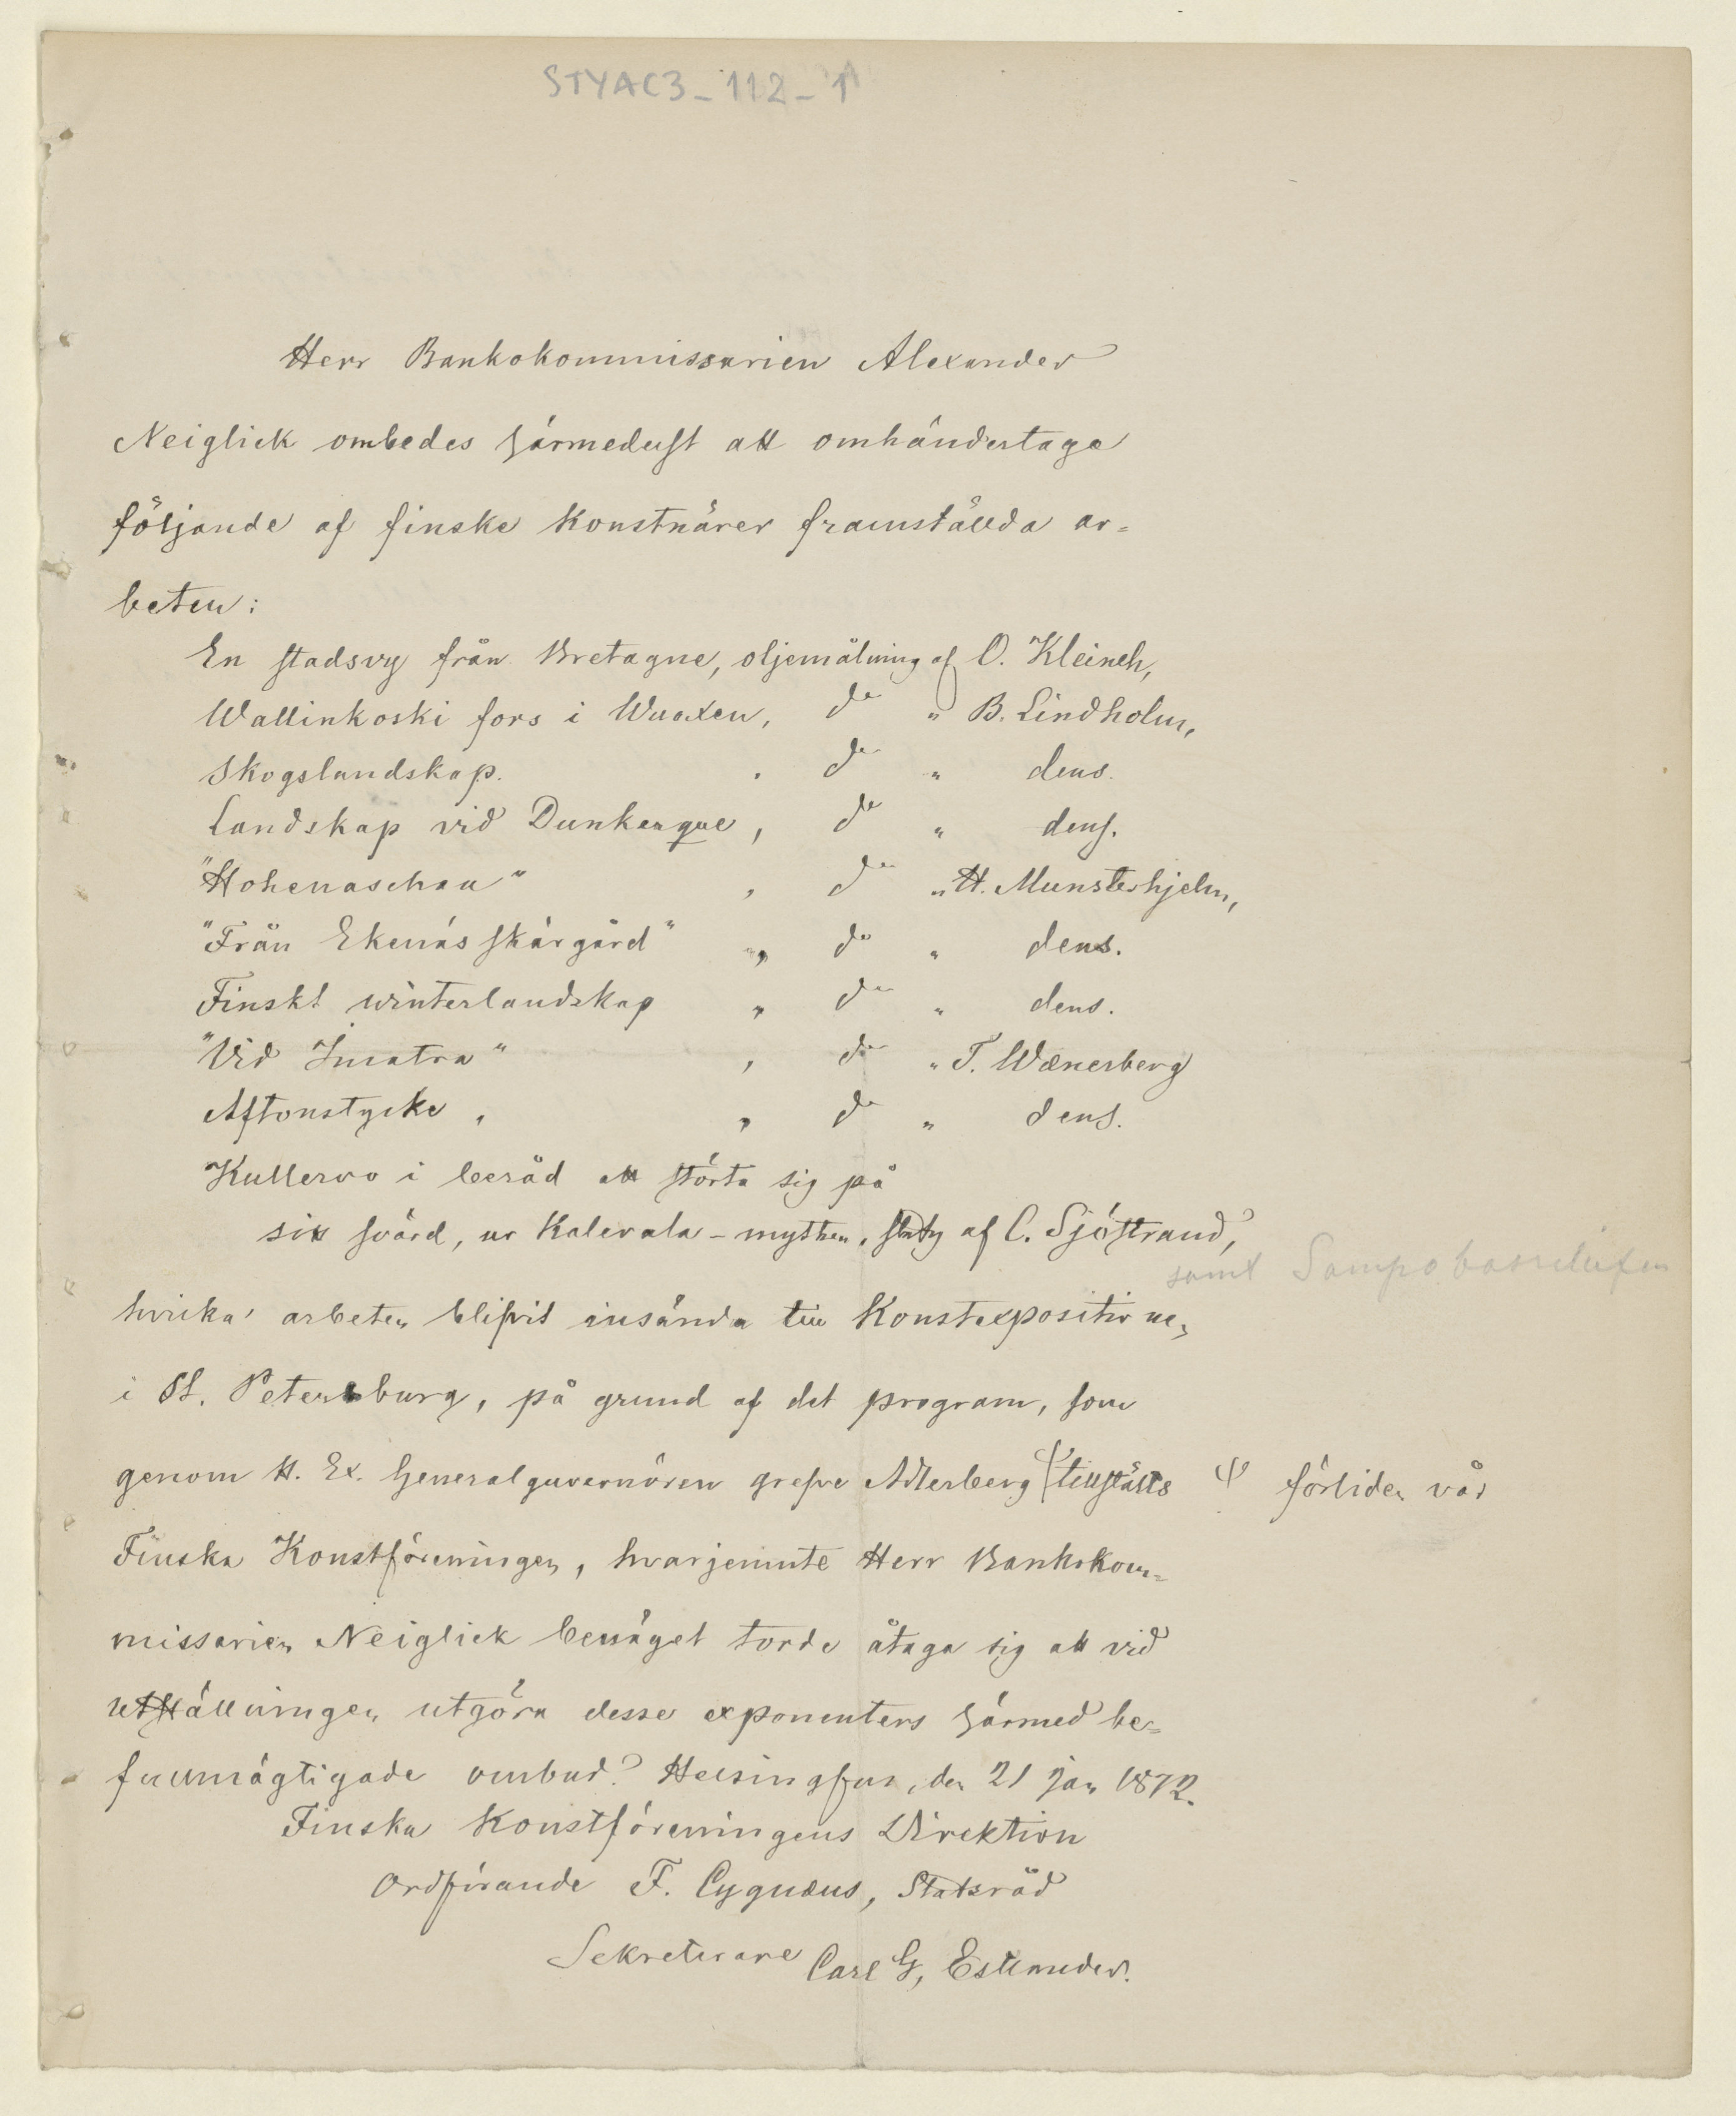 STYAC3_112_1A
Herr Bankokommissarien Alexander
Neiglick ombedes härmedelst att omhändertaga
följande af finske Konstnärer framställda ar=
beten:
En stadsvy från Bretagne, oljemålning af O. Kleineh,
Wallinkoski fors i Wuoxen, do " B. Lindholm,
Skogslandskap. , do " dens.
Landskap vid Dunkerque, do " dens.
"Hohenaschau" , do " H. Munsterhjelm,
"Från Ekenäs skärgård" , do " dens.
Finskt winterlandskap , do " dens.
"Vid Imatra" , do " T. Wænerberg
Aftonstycke , , do " dens.
Kullervo i beråd att störta sig på
sitt svärd, ur Kalevala-mythen, staty af C. Sjöstrand,
samt Sampo basreliefen
hvilka arbeten blifvit insända till Konstexpositionen
i St. Petersburg, på grund af det program, som
genom H. Ex. Generalguvernören grefve Adlerberg tillstälts förliden vår
Finska Konstföreningen, hvarjemnte Herr Bankokom=
missarien Neiglick benäget torde åtaga sig att vid
utställningen utgöra desse exponenters härmed be=
fullmägtigade ombud. Helsingfors, den 21 jan 1872.
Finska Konstföreningens Direktion
Ordförande F. Cygnæus, Statsråd
Sekreterare Carl G, Estlander.